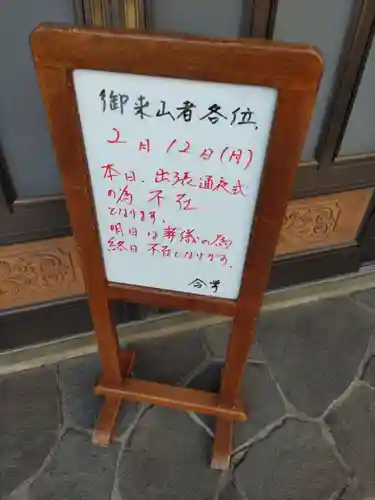 御来山者各位
2月12日(月)
本日、出張通夜式
の為 不在
となります。
明日は葬儀の為
終日不在になります。
合掌